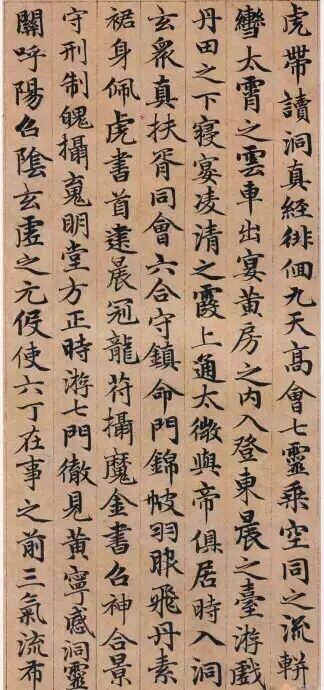 虎帶讀洞真經徘佪九天髙會七靈乗空同之流軿
轡太霄之雲車出宴黄房之内入登東晨之臺游戲
丹田之下寢宴凌清之霞上通太微與帝俱居時入洞
玄衆真扶胥同會六合守鎮命門錦帔羽服飛丹素
裙身佩虎書首建晨冠龍苻攝魔金書召神合景
守刑制魄攝䰟明堂方正時游七門徹見黄寧感洞靈
關呼陽召陰玄虛之元役使六丁在事之前三氣流布